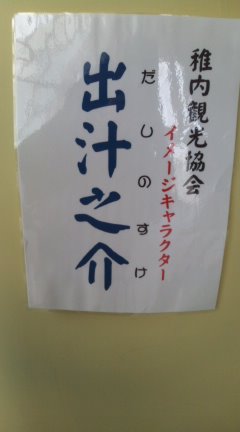 稚内観光協会
イメージキャラクター
だしのすけ
出汁之介